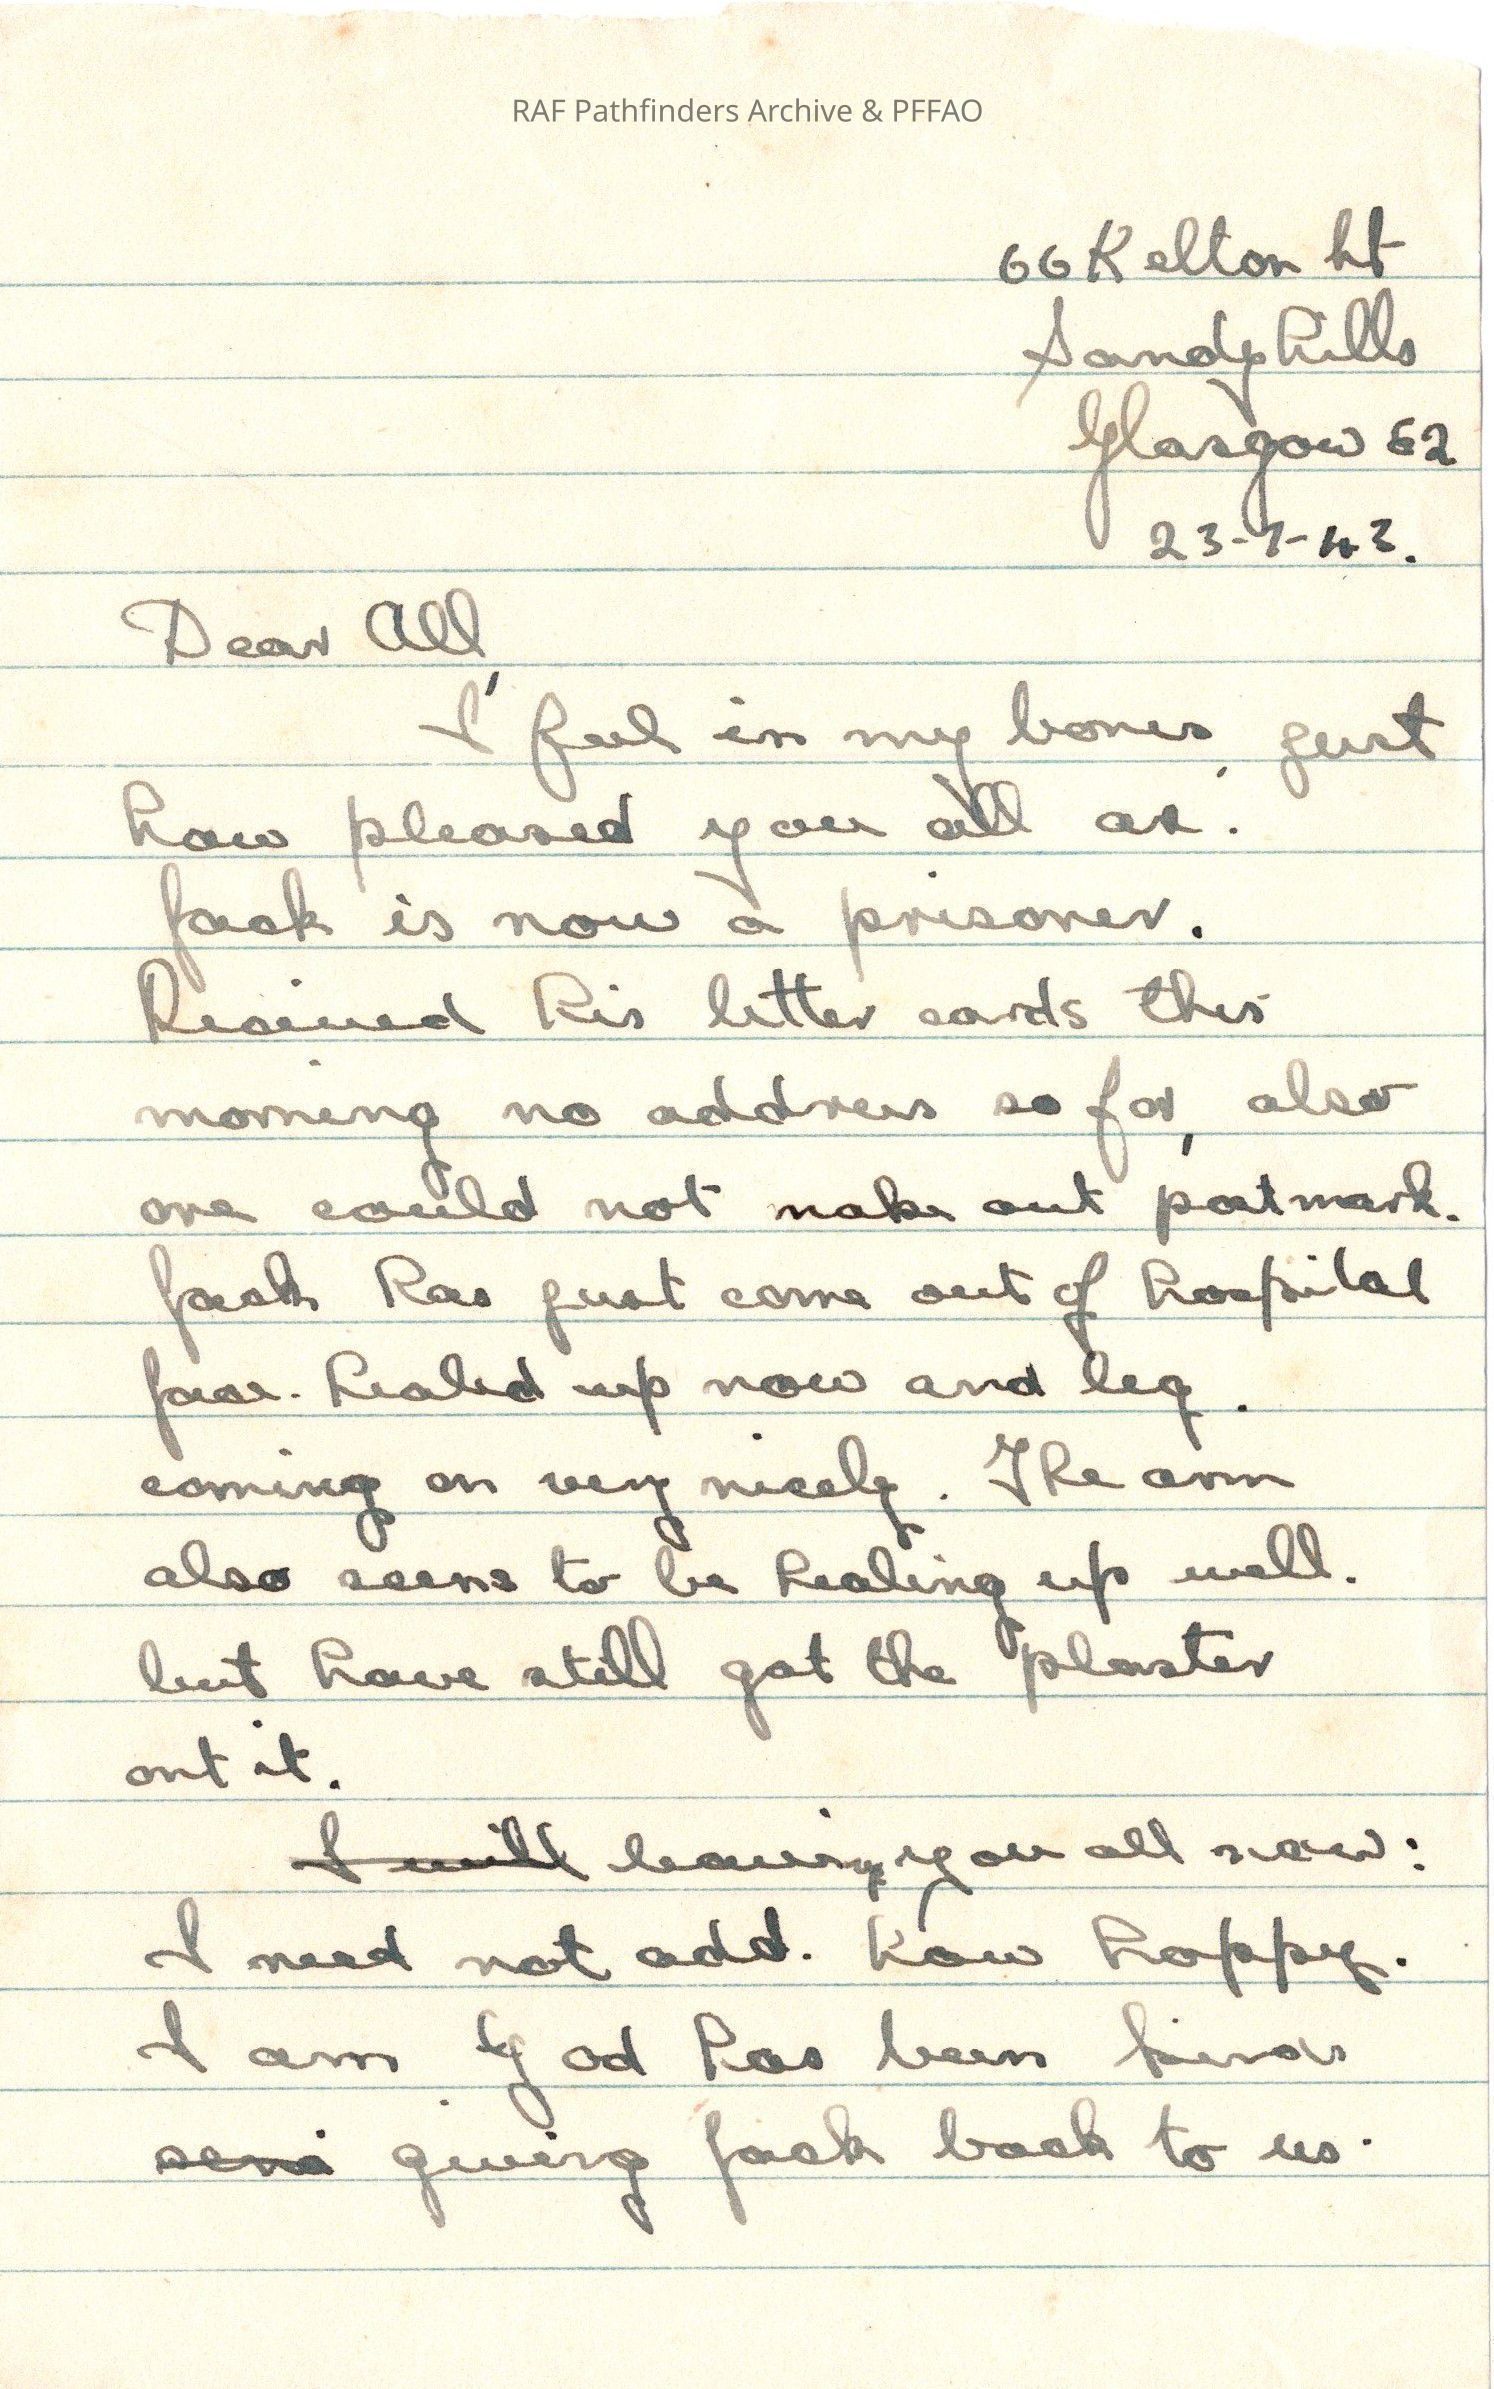 RAF Pathfinders Archive & PFFAO
66 Kelton St
Sandyhills
Glasgow E2
23-7-43.
Dear All,
I feel in my bones, just
how pleased you all are.
Jack is now a prisoner.
Received his letter cards this
morning no address so far, also
one could not make out postmark.
Jack has just come out of hospital
face. healed up now and leg.
coming on very nicely. The arm
also seems to be healing up well.
but have still got the plaster
ont it.
I will leaving you all now:
I need not add. how happy.
I am God has been kind
giving Jack back to us.